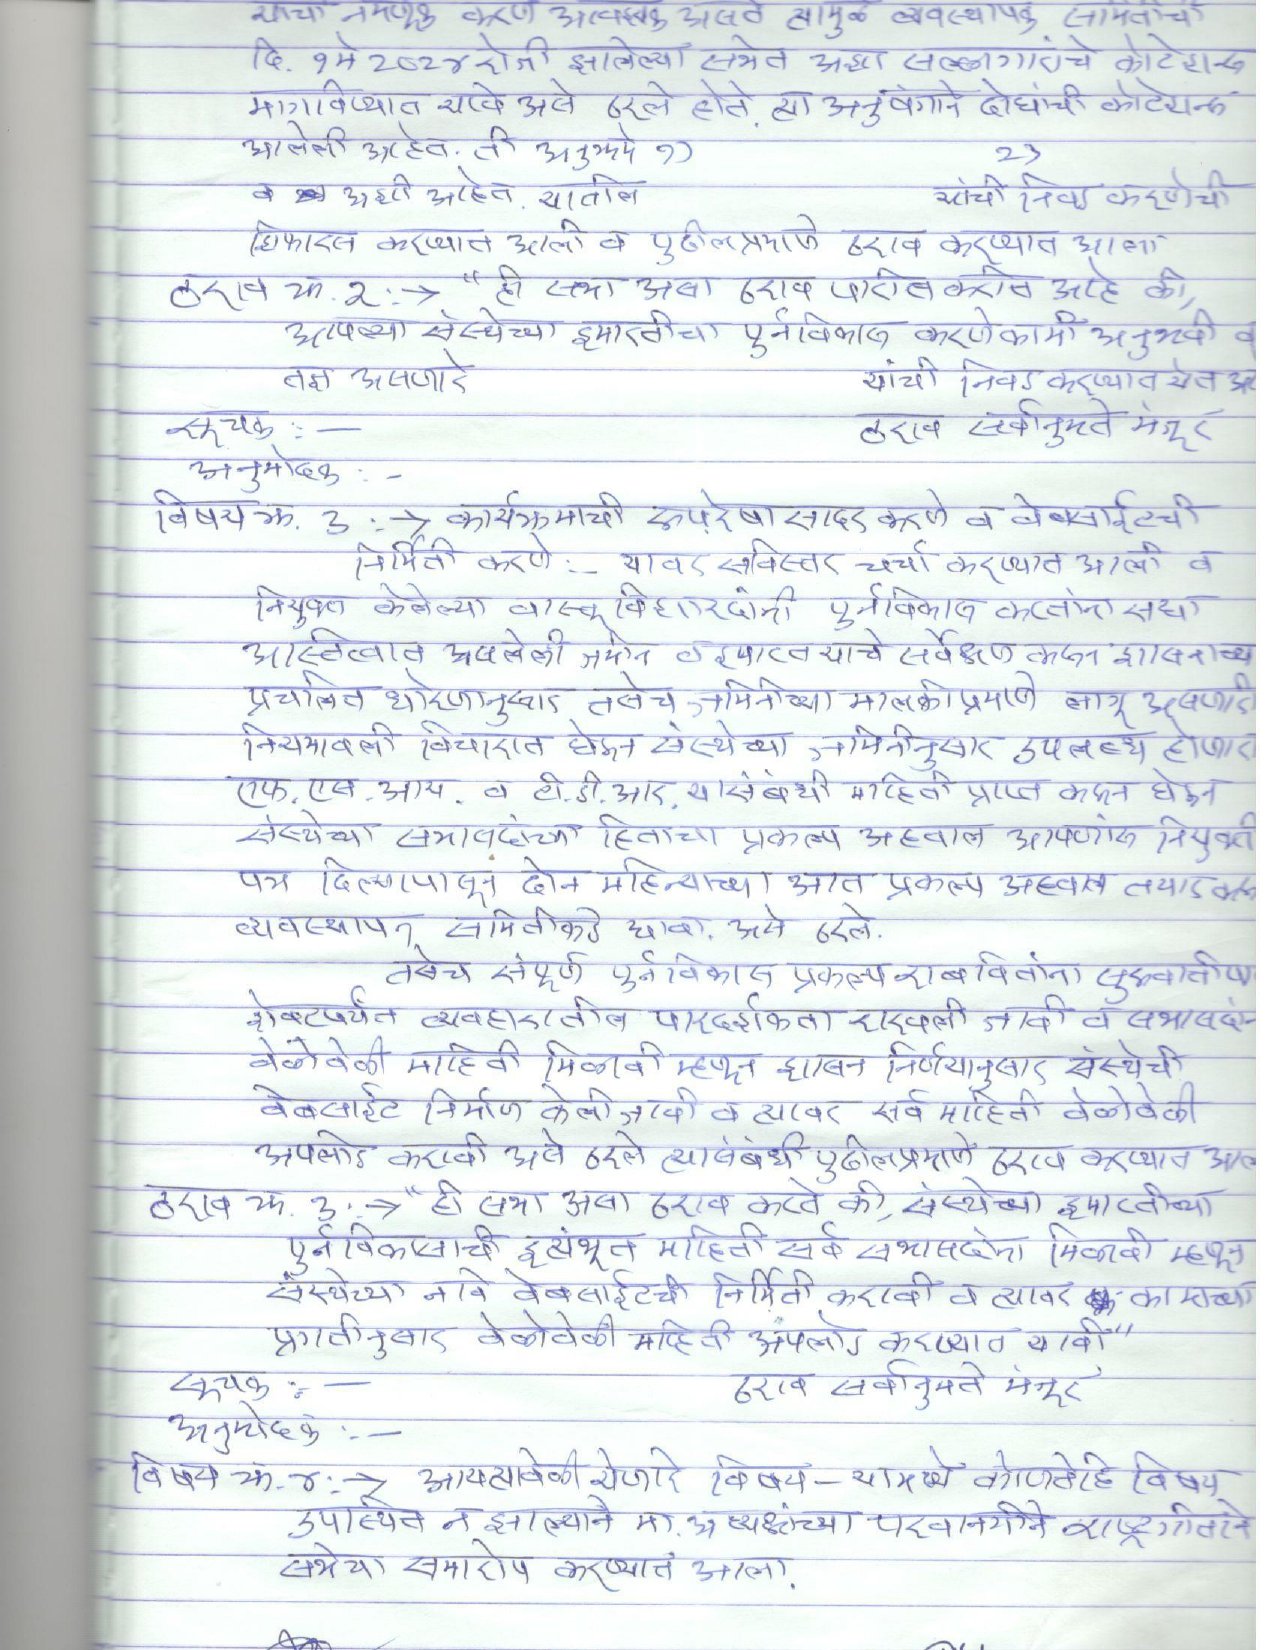 यांची नेमणूक करणे आवश्यक असते त्यामुळे व्यवस्थापक समितीची
दि. १ मे २०२४ रोजी झालेल्या सभेत अशा सल्लागारांचे कोटेशन्स
मागविण्यात यावे असे ठरले होते. त्या अनुषंगाने दोघांची कोटेशन्स
आलेली आहेत. ती अनुक्रमे १) २)
व अशी आहेत. यातील यांची निवड करणेची
शिफारस करण्यात आली व पुढीलप्रमाणे ठराव करण्यात आला
ठराव क्र. २ :→ "ही सभा असा ठराव पारीत करीत आहे की,
आपल्या संस्थेच्या इमारतीचा पुर्नविकास करणेकामी अनुभवी व
तज्ञ असणारे यांची निवड करण्यात येत
सूचक :— ठराव सर्वानुमते मंजूर
अनुमोदक :-
विषय क्र. ३ :→ कार्यक्रमाची रुपरेषा सादर करणे व वेबसाईटची
निर्मिती करणे :— यावर सविस्तर चर्चा करण्यात आली व
नियुक्त केलेल्या वास्तूविशारदांनी पुर्नविकास करतांना सध्या
अस्तित्वात असलेली जमीन व इमारत याचे सर्वेक्षण करुन शासनाच्या
प्रचलित धोरणानुसार तसेच जमिनीच्या मालकीप्रमाणे लागू असणारी
नियमावली विचारात घेऊन संस्थेच्या जमिनीनुसार उपलब्ध होणारा
एफ. एस. आय. व टी. डी. आर. यासंबंधी माहिती प्राप्त करुन घेऊन
संस्थेच्या सभासदांच्या हिताचा प्रकल्प अहवाल आपणांस नियुक्ती
पत्र दिल्यापासून दोन महिन्याच्या आत प्रकल्प अहवाल तयार करुन
व्यवस्थापन समितीकडे द्यावा. असे ठरले.
तसेच संपूर्ण पुर्नविकास प्रकल्प राबवितांना सुरुवातीपा
शेवटपर्यंत व्यवहारातील पारदर्शकता राखली जावी व सभासदांन
वेळोवेळी माहिती मिळावी म्हणून शासन निर्णयानुसार संस्थेची
वेबसाईट निर्माण केली जावी व त्यावर सर्व माहिती वेळोवेळी
अपलोड करावी असे ठरले त्यासंबंधी पुढीलप्रमाणे ठराव करण्यात आल
ठराव क्र. ३ :→ "ही सभा असा ठराव करते की, संस्थेच्या इमारतीच्या
पुर्नविकासाची इत्यंभूत माहिती सर्व सभासदांना मिळावी म्हणून
संस्थेच्या नावे वेबसाईटची निर्मिती करावी व त्यावर कामाच्या
प्रगतीनुसार वेळोवेळी माहिती अपलोड करण्यात यावी"
सूचक :— ठराव सर्वानुमते मंजूर
अनुमोदक :—
विषय क्र. ४ :→ आयत्यावेळी येणारे विषय — यामध्ये कोणतेहि विषय
उपस्थित न झाल्याने मा. अध्यक्षांच्या परवानगीने राष्ट्रगीताने
सभेचा समारोप करण्यात आला.